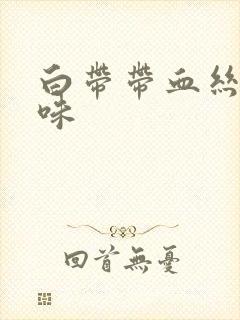 白帶帶血絲
味
回首無憂